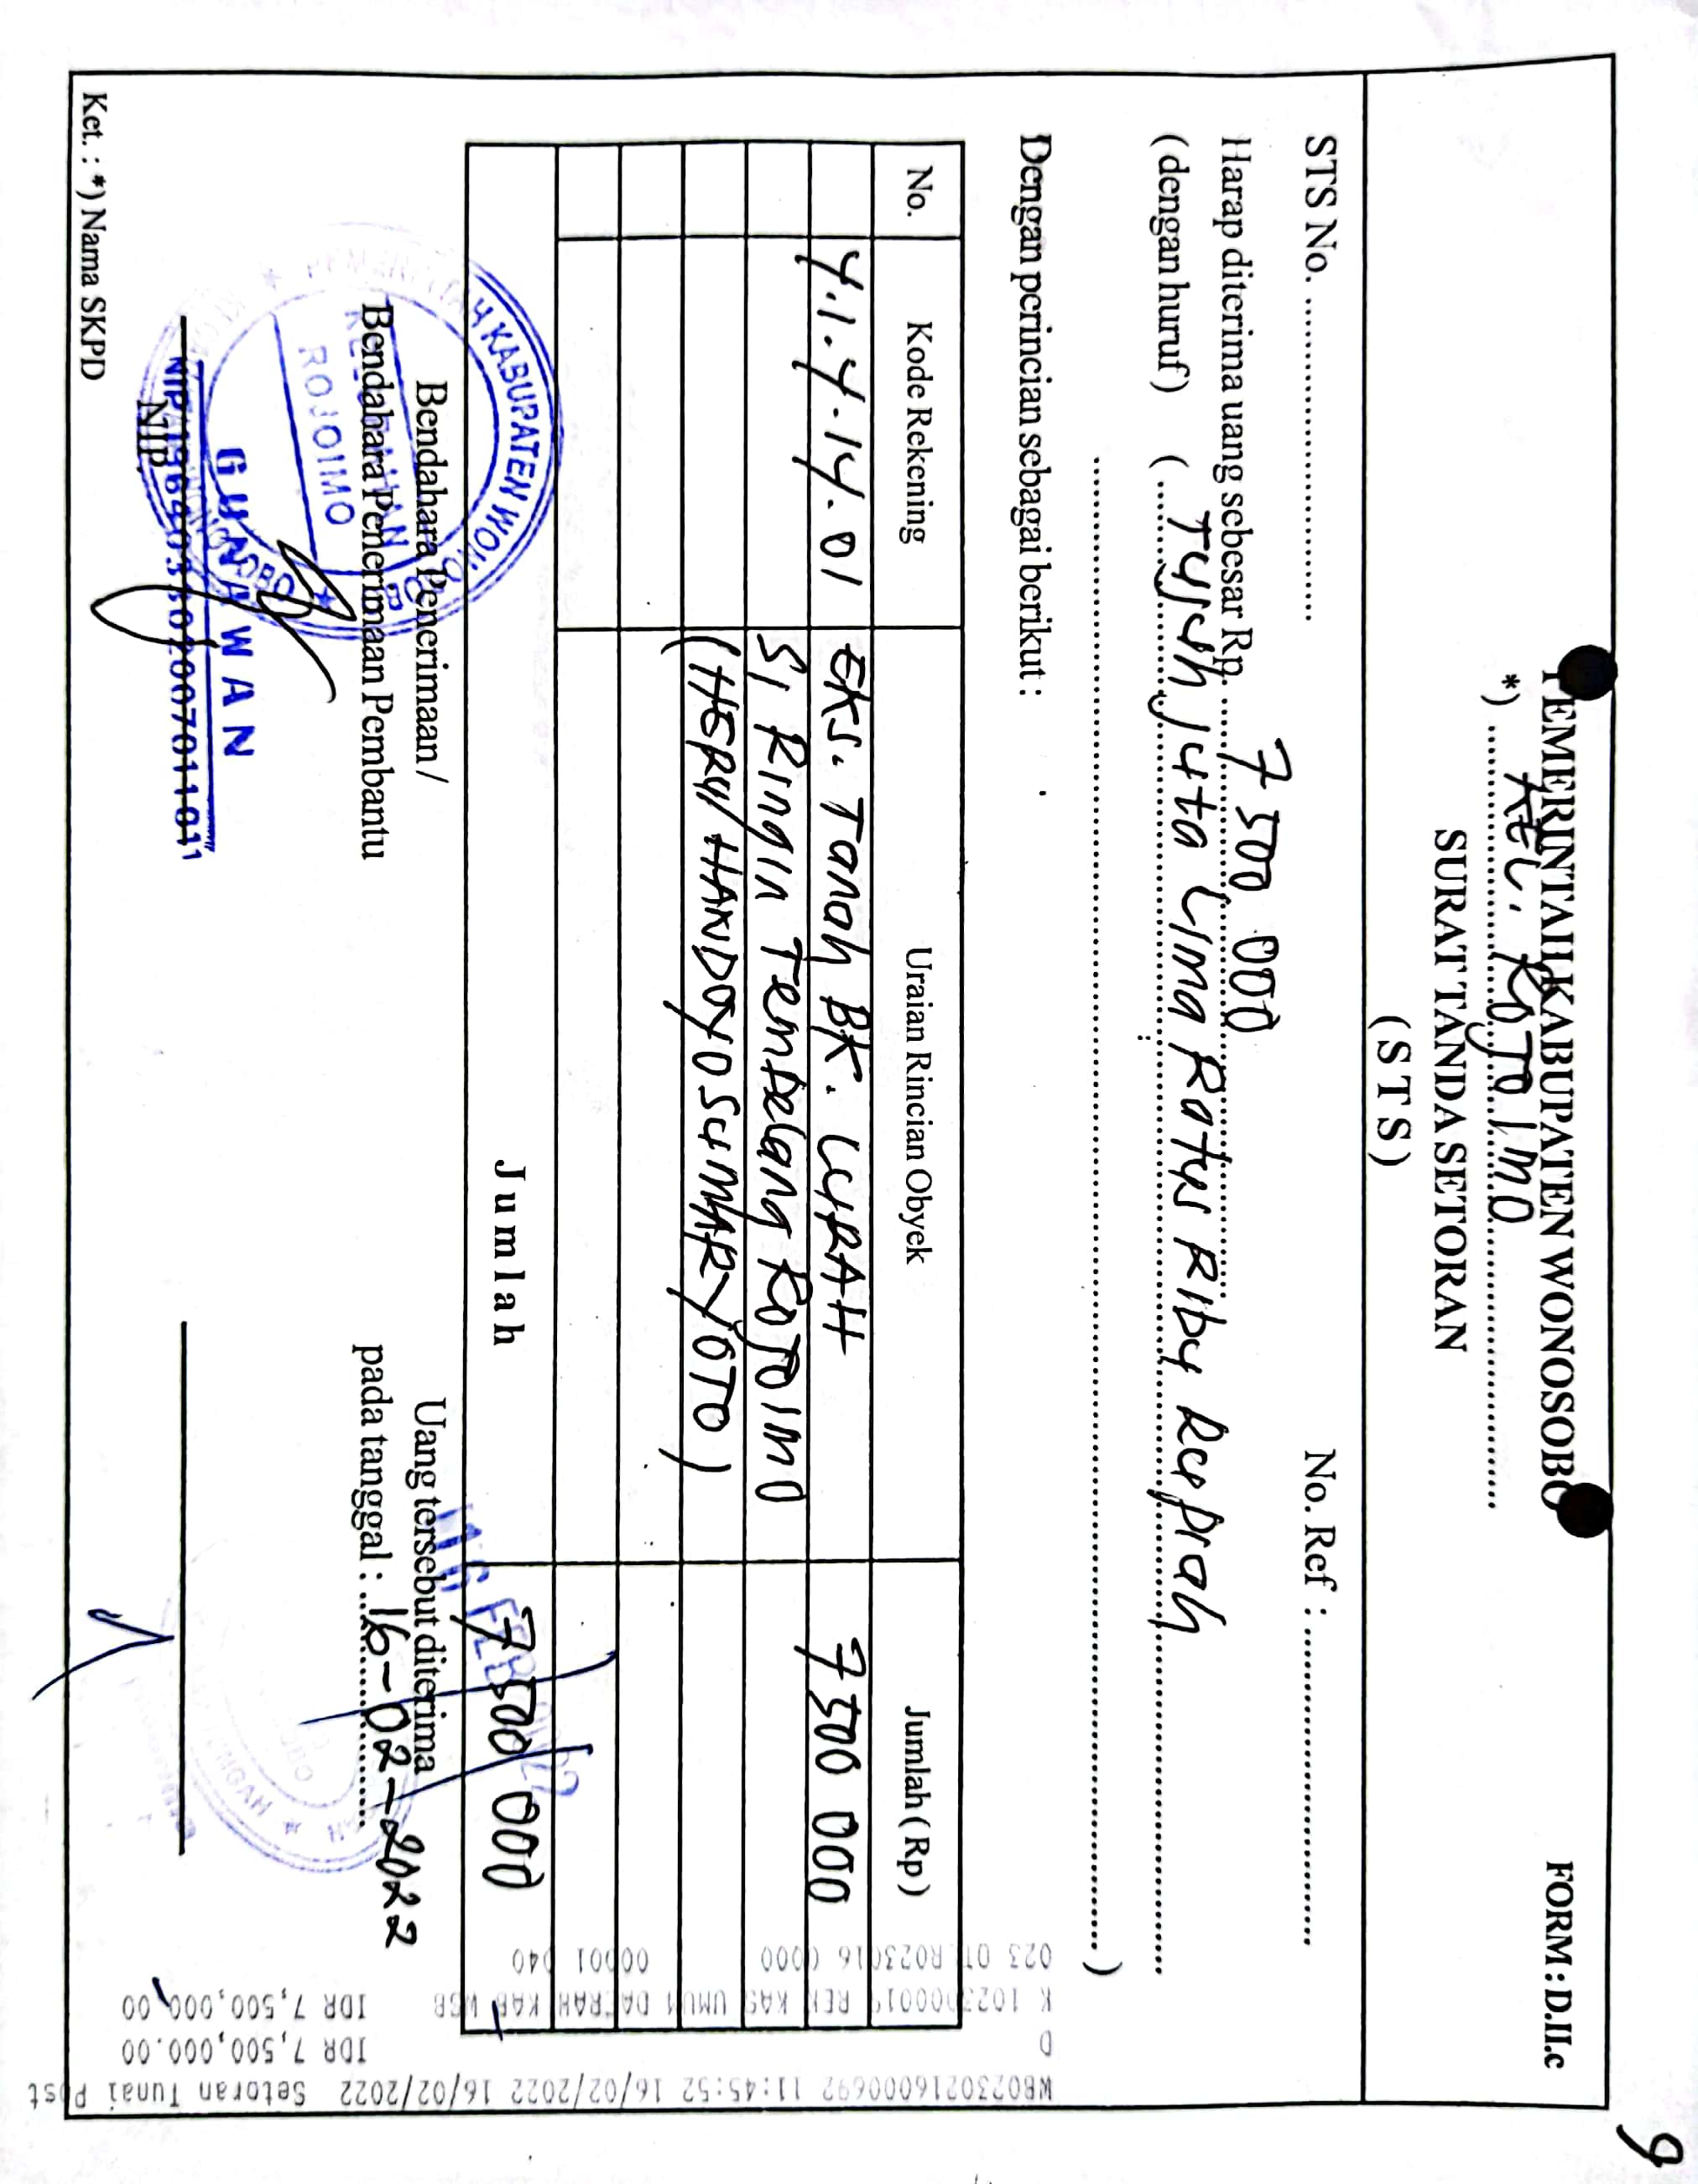 9
FORM : D.II.c
PEMERINTAH KABUPATEN WONOSOBO
*) Kel. Rojoimo
SURAT TANDA SETORAN
( S T S )
STS No. No. Ref :
Harap diterima uang sebesar Rp. 7 500 000
( dengan huruf ) ( Tujuh juta Lima Ratus Ribu Rupiah
)
Dengan perincian sebagai berikut :
No. Kode Rekening Uraian Rincian Obyek Jumlah ( Rp )
4.1.4.14.01 Eks. Tanah BK. LURAH 7 500 000
Si Ringin Tembelang Rojoimo
(HERU HANDOYO SUMARYOTO)
J u m l a h 7 500 000
16 FEB 2022
Bendahara Penerimaan /
Bendahara Penerimaan Pembantu
Uang tersebut diterima
pada tanggal : 16-02-2022
PEMERINTAH KABUPATEN WONOSOBO
KELURAHAN
ROJOIMO
GUNAWAN
NIP.
Ket. : *) Nama SKPD
WB02302160000692 11:45:52 16/02/2022 16/02/2022 Setoran Tunai Post
D IDR 7,500,000.00
REK KAS UMUM DAERAH KAB WSB IDR 7,500,000.00
0000 00001 040